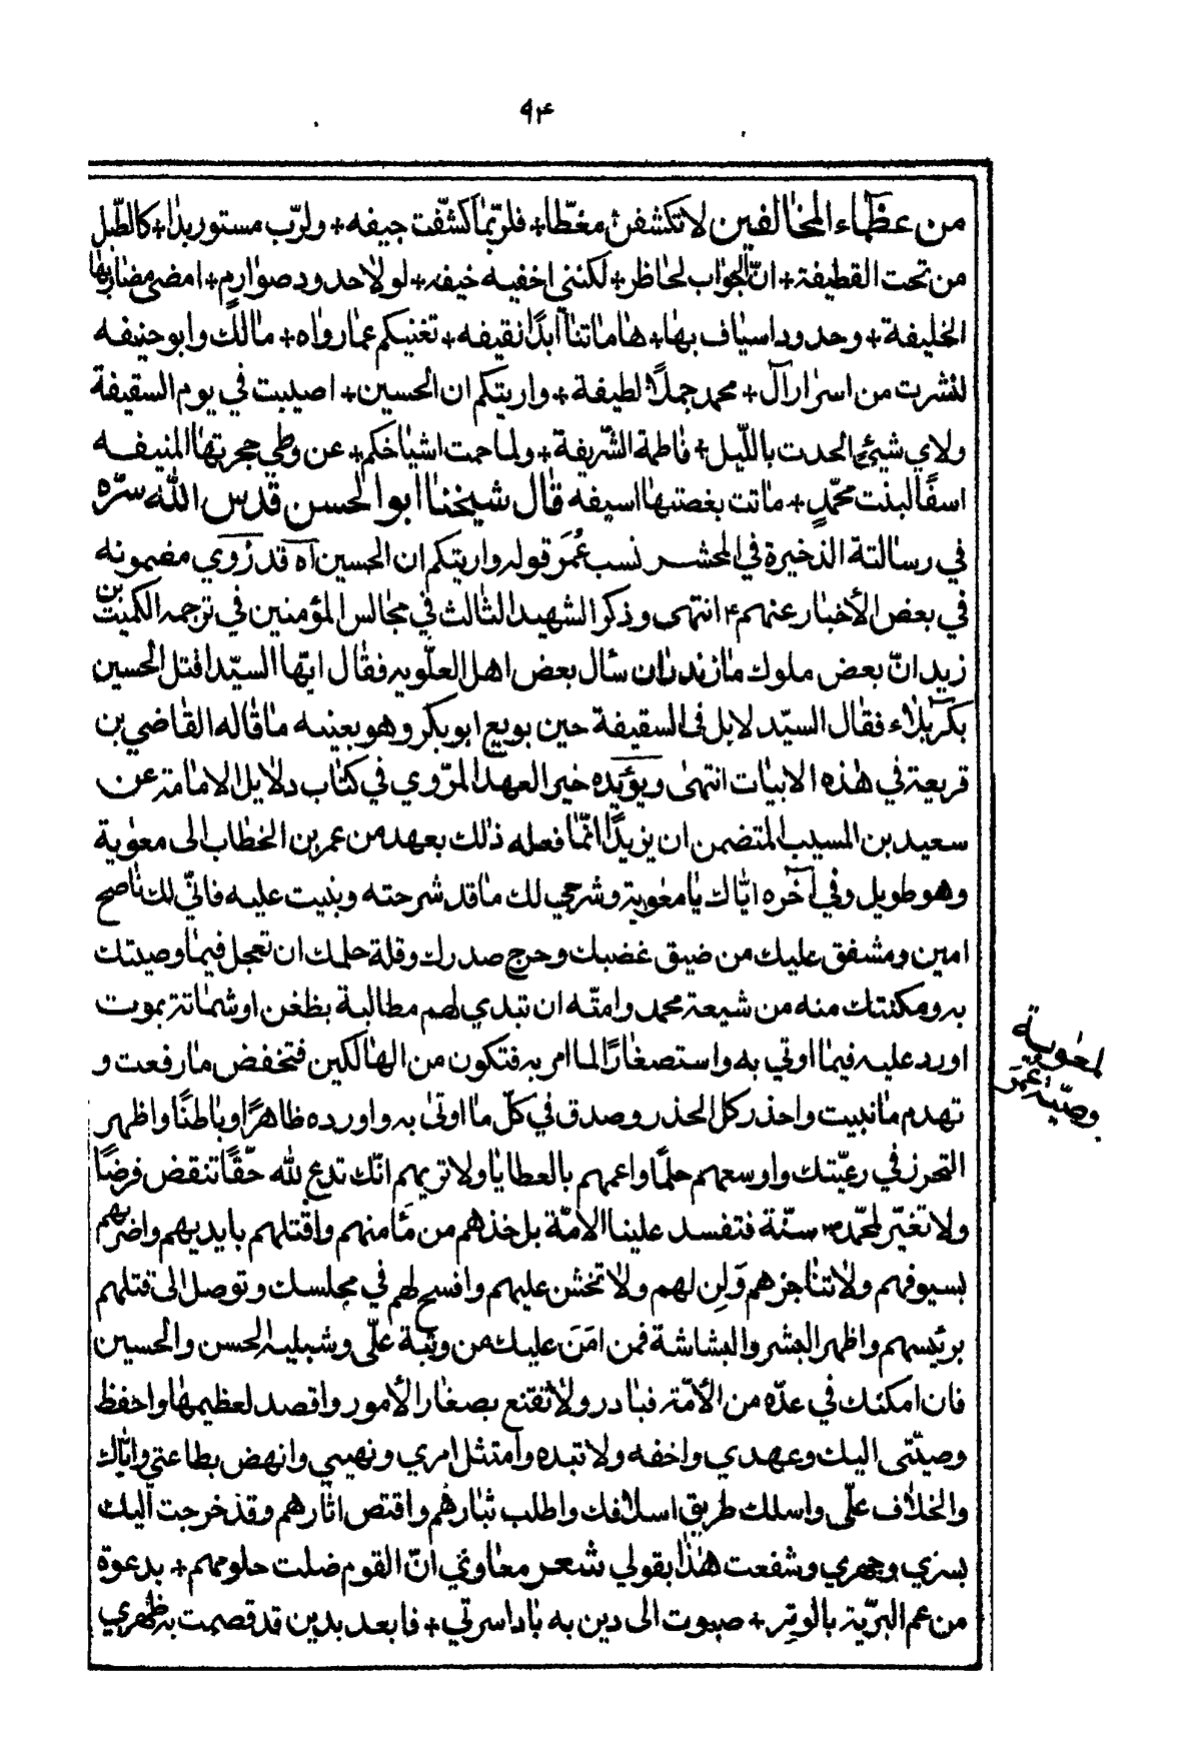 ۹۴
من عظماء المخالفين لا تكشفن مغطا + فلربما كشفت جيفه + ولرب مستور بدا + كالطبل
من تحت القطيفة + ان الجواب لحاظر + لكنني اخفيه خيفه + لولا حدود صوارم + امضى مضاربها
الخليفة + وحدود اسياف بها + هاماتنا ابدًا نقيفه + تغنيكم عما رواه + مالك وابو حنيفه
لنشرت من اسرار آل + محمد جملًا لطيفة + واريتكم ان الحسين + اصيبت في يوم السقيفة
ولاي شيئ الحدت بالليل + فاطمة الشريفة + ولما حمت اشياخكم + عن وطي حجرتها المنيفه
اسفًا لبنت محمدٍ + ماتت بغصتها اسيفه قال شيخنا ابو الحسن قدس الله سره
في رسالتة الذخيرة في المحشر نسب عُمَر قوله واريتكم ان الحسين آه قد رُوي مضمونه
في بعض الأخبار عنهم ۴ انتهى وذكر الشهيد الثالث في مجالس المؤمنين في ترجمه الكميت بن
زيد انّ بعض ملوك مازندران سأل بعض اهل العلّويه فقال ايّها السيّد اقتل الحسين
بكربلاء فقال السيّد لا بل في السقيفة حين بويع ابو بكر وهو بعينه ما قاله القاضي بن
قريعة في هذه الابيات انتهى ويؤيّده خير العهد المرّوي في كتاب دلايل الامامة عن
سعيد بن المسيب المتضمن ان يزيدًا انّما فعله ذلك بعهد من عمر بن الخطاب الى معوية
وهو طويل وفي آخره ايّاك يا معوية وشرحي لك ما قد شرحته وبنيت عليه فانّي لك ناصح
امين ومشفق عليك من ضيق غضبك وحرج صدرك وقلة حلمك ان تعجل فيما وصيتك
به ومكنتك منه من شيعة محمد وامتّه ان تبدي لهم مطالبة بظغن او شماتة بموت
اورد عليه فيما اوتي به واستصغارًا لما امر به فتكون من الهالكين فتخفض ما رفعت و
تهدم ما نبيت واحذر كل الحذر وصدق في كلّ ما اوتى به واورده ظاهرًا وباطنًا واظهر
التحرز في رعيّتك واوسعهم حلمًا واعمهم بالعطايا ولا تريهم انّك تدع لله حقًّا تنقض فرضًا
ولا تغيّر لمحمّد ص سنّة فتفسد علينا الامّة بل خذهم من مأمنهم واقتلهم بايديهم واضربهم
بسيوفهم ولا تناجزهم وَلِن لهم ولا تخشن عليهم وافسح لهم في مجلسك وتوصل الى قتلهم
برئيسهم واظهر البشر والبشاشة فمن امَنَ عليك من وثبة علّي وشبليه الحسن والحسين
فان امكنك في عدّه من الأمّة فبادر ولا تقتنع بصغار الأمور واقصد لعظيمها واحفظ
وصيّتى اليك وعهدي واخفه ولا تبده وامتثل امري ونهيي وانهض بطاعتي وايّاك
والخلاف علّي واسلك طريق اسلافك واطلب بثارهُم واقتص اثارهم وقد خرجت اليك
بسرّي وجهري وشفعت هذا بقولي شعر معاوي انّ القوم ضلت حلومهم + بدعوة
من عم البريّة بالوتِر + صبوت الى دين به باد اسرتي + فابعد بدين قد قصمت به ظهري
لمعوية
وصيّة عمر